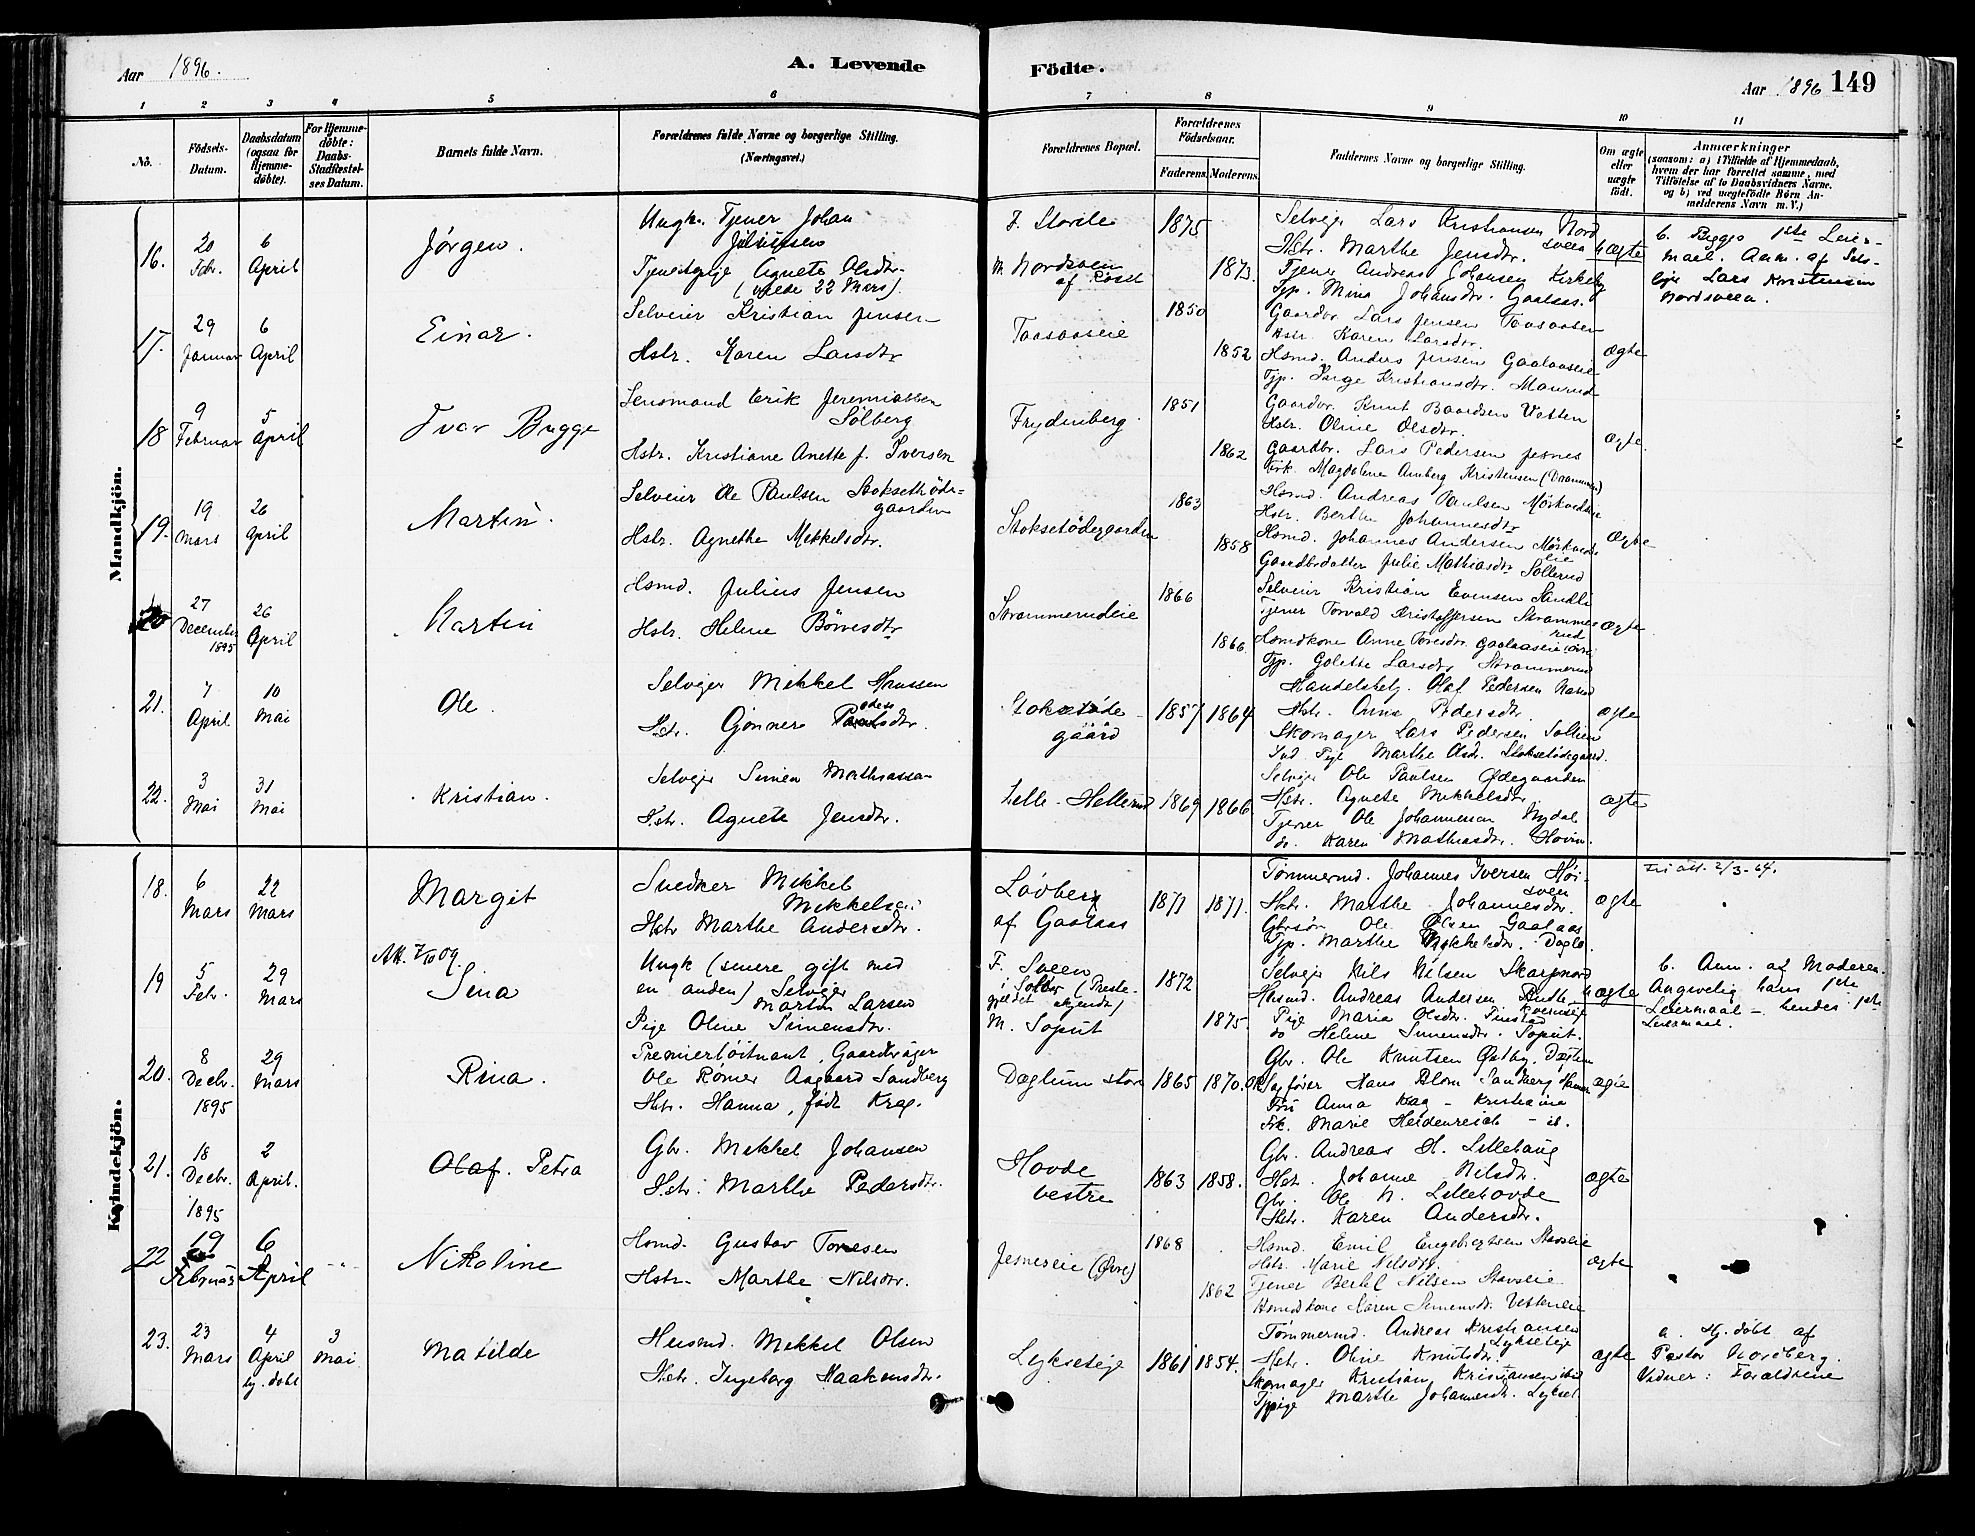 Aar 1896.
A. Levende
Födte.
Aar 1896 149
1 2 3 4 5 6 7 8 9 10 11
No.
Födsels-Datum.
Daabsdatum (ogsaa for Hjemme-döbte).
For Hjemme-döbte: Daabs-Stadfæstel-ses Datum.
Barnets fulde Navn.
Forældrenes fulde Navne og borgerlige Stilling. (Næringsvei.)
Forældrenes Bopæl.
Forældrenes Födselsaar.
Faderens. Moderens.
Faddernes Navne og borgerlige Stilling.
Om ægte eller uægte födt.
Anmærkninger
(saasom: a) i Tilfælde af Hjemmedaab, hvem der har forrettet samme, med Tilföielse af to Daabsvidners Navne. og b) ved uægtefödte Börn An-melderens Navn m. V.)
Mandkjön.
16. 20 Febr. 6 April
Jørgen.
Ungk. Tjener Johan
Julius sen
Agnete Olsdtr.
(vilde 22 Mars)
F. Storlie
M. Nordsveen
1875
1873
Selvejer Lars Kristiansen Nord
sveen
Hstr. Marthe Jensdtr.
Tjener Andreas Johansen Kirkeby
Tjp. Mina Johansdtr. Gaalaas.
uægte
b. Begges 1ste Leier-
maal. Anm. af Selv-
ejer Lars Kristensen
Nordsveen.
17. 29 Januar 6 April
Einar.
Selveier Kristian Jensen
Hstr. Karen Larsdtr
Taasaaseie
1850
1852
Gaardbr. Lars Jensen Taasaasen
Hstr. Karen Larsdtr.
Hsmd. Anders Jensen Gaalaaseie
Tjp. Inge Kristiansdtr. Maurud
ægte
18 9 Februar 5 April
Ivar Bugge
Lensmand Erik Jeremiassen
Sølberg
Hstr. Kristiane Anette f. Iversen
Frydenberg.
1851
1862
Gaardbr. Knut Baardsen Vesten
Hstr. Oline Olsdtr.
Gaardbr. Lars Pedersen Jesnes
Frk. Magdalene Amberg Kristensen (Drammen)
ægte.
19. 19 Mars 26 April
Martin.
Selveier Ole Paulsen Stoksethøde-
gaarden
Hstr. Agnethe Mikkelsdtr.
Stoksetødegaarden
1863
1858
Hsmd. Andreas Paulsen
Hstr. Berthe Johannesdtr
Hsmd. Johannes Andersen
Gaardbrdatter Julie Mathiasdtr Sollerud
ægte
20 27 December 1895 26 April
Martin
Hsmd. Julius Jensen
Hstr. Helene Børresdtr
Strammerudeie
1866
1866.
Selveier Kristian Evensen
Tjener Torvald Kristoffersen Strammer
rud
Hsmdkone Anne Toresdtr Gaalaaseie
Tjp. Golette Larsdtr Strammerud
ægte
21. 7 April 10 Mai
Ole.
Selvejer Mikkel Hansen
Hstr. Gjønner Pedersdtr.
Stoksetøde-
gaard
1857 1864
Handelsbetj. Olaf Pedersen
Hstr. Anne Pedersdtr.
Skomager Lars Pedersen Sollien
Ind. Pige Marthe Olsdtr. Stoksetødegaard.
ægte
22. 3 Mai 31 Mai
Kristian.
Selvejer Simen Mathiassen
Hstr. Agnete Jensdtr.
Lille-Hellerud
1869 1866.
Selvejer Ole Paulsen Ødegaarden
Hstr. Agnete Mikkelsdtr
Tjener Ole Johannesen Nydal.
do. Karen Mathiasdtr. Hovin.
ægte
Kvindekjön.
18. 6 Mars 22 Mars
Margit
Snedker Mikkel
Mikkelsen
Hstr Marthe Andersdtr.
Løvberg
af Gaalaas
1871 1871.
Tømmermd. Johannes Iversen Høi-
sveen
Hstr. Marthe Johannesdtr.
Gbrsøn Ole Olsen Gaalaas
Tjp. Marthe Mikkelsdtr.
ægte
att. 2/3-64.
19 5 Febr. 29 Mars
Att. 7/10 09.
Sina
Ungk (senere gift med
en anden) Selvejer
Martin Larsen
Pige Oline Simensdtr.
F. Sveen
i (Preste-
gjeldet ukjendt)
M. Soput
1872
1875.
Selvejer Nils Nilsen Skarpnord
Husmd. Andreas Andersen
Pige Maria Olsdtr.
do Helene Simensdtr. Soput.
uægte
b. Anm. af Moderen.
Angivelig hans 1ste
Leiermaal - hendes 1ste
Leiermaal.
20. 8 Decbr. 1895 29 Mars
Rina.
Premierløitnant, Gaardbruger
Ole Rømer Aagaard Sandberg
Hstr. Hanna, født Krag.
Dæhlum store
1865 1870.
Gbr. Ole Knutsen Østby,
Sagfører Hans Blom Sandberg Hamar
Fru Anna Krag - Kristiania
Frk. Marie Heidenreich - id.
ægte
21. 18 Decbr. 1895 2 April.
Olaf. Petra
Gbr. Mikkel Johansen
Hstr. Marthe Pedersdtr.
Hovde
vestre
1863 1858.
Gbr. Andreas H. Lillehaug
Hstr. Johanne Nilsdtr.
Gbr. Ole N. Lillehovde
Hstr. Karen Andersdtr.
ægte
22 19 Februar 6 April
Nikoline
Hsmd. Gustav Toresen
Hstr. Marthe Nilsdtr.
Jesneseie (Øvre)
1868
1862
Hsmd. Emil Engebretsen Stavseie
Hstr. Marie Nilsdtr.
Tjener Bertel Nilsen Stavseie
Hsmdskone Karen Simensdtr. Vesteneie
ægte
23. 23 Mars 4 April hj. døbt 3 Mai
Matilde
Husmd. Mikkel Olsen
Hstr. Ingeborg Haakensdtr.
Lykseteje
1861 1854.
Tømmermd. Andreas Kristiansen
Lykseteje
Hstr. Oline Knutsdtr.
Skomager Kristian Kristiansen ibid
Tjpige Marthe Johannesdtr. Lykset
ægte
a. Hj. døbt af
Pastor Nordberg.
Vidner: Forældrene